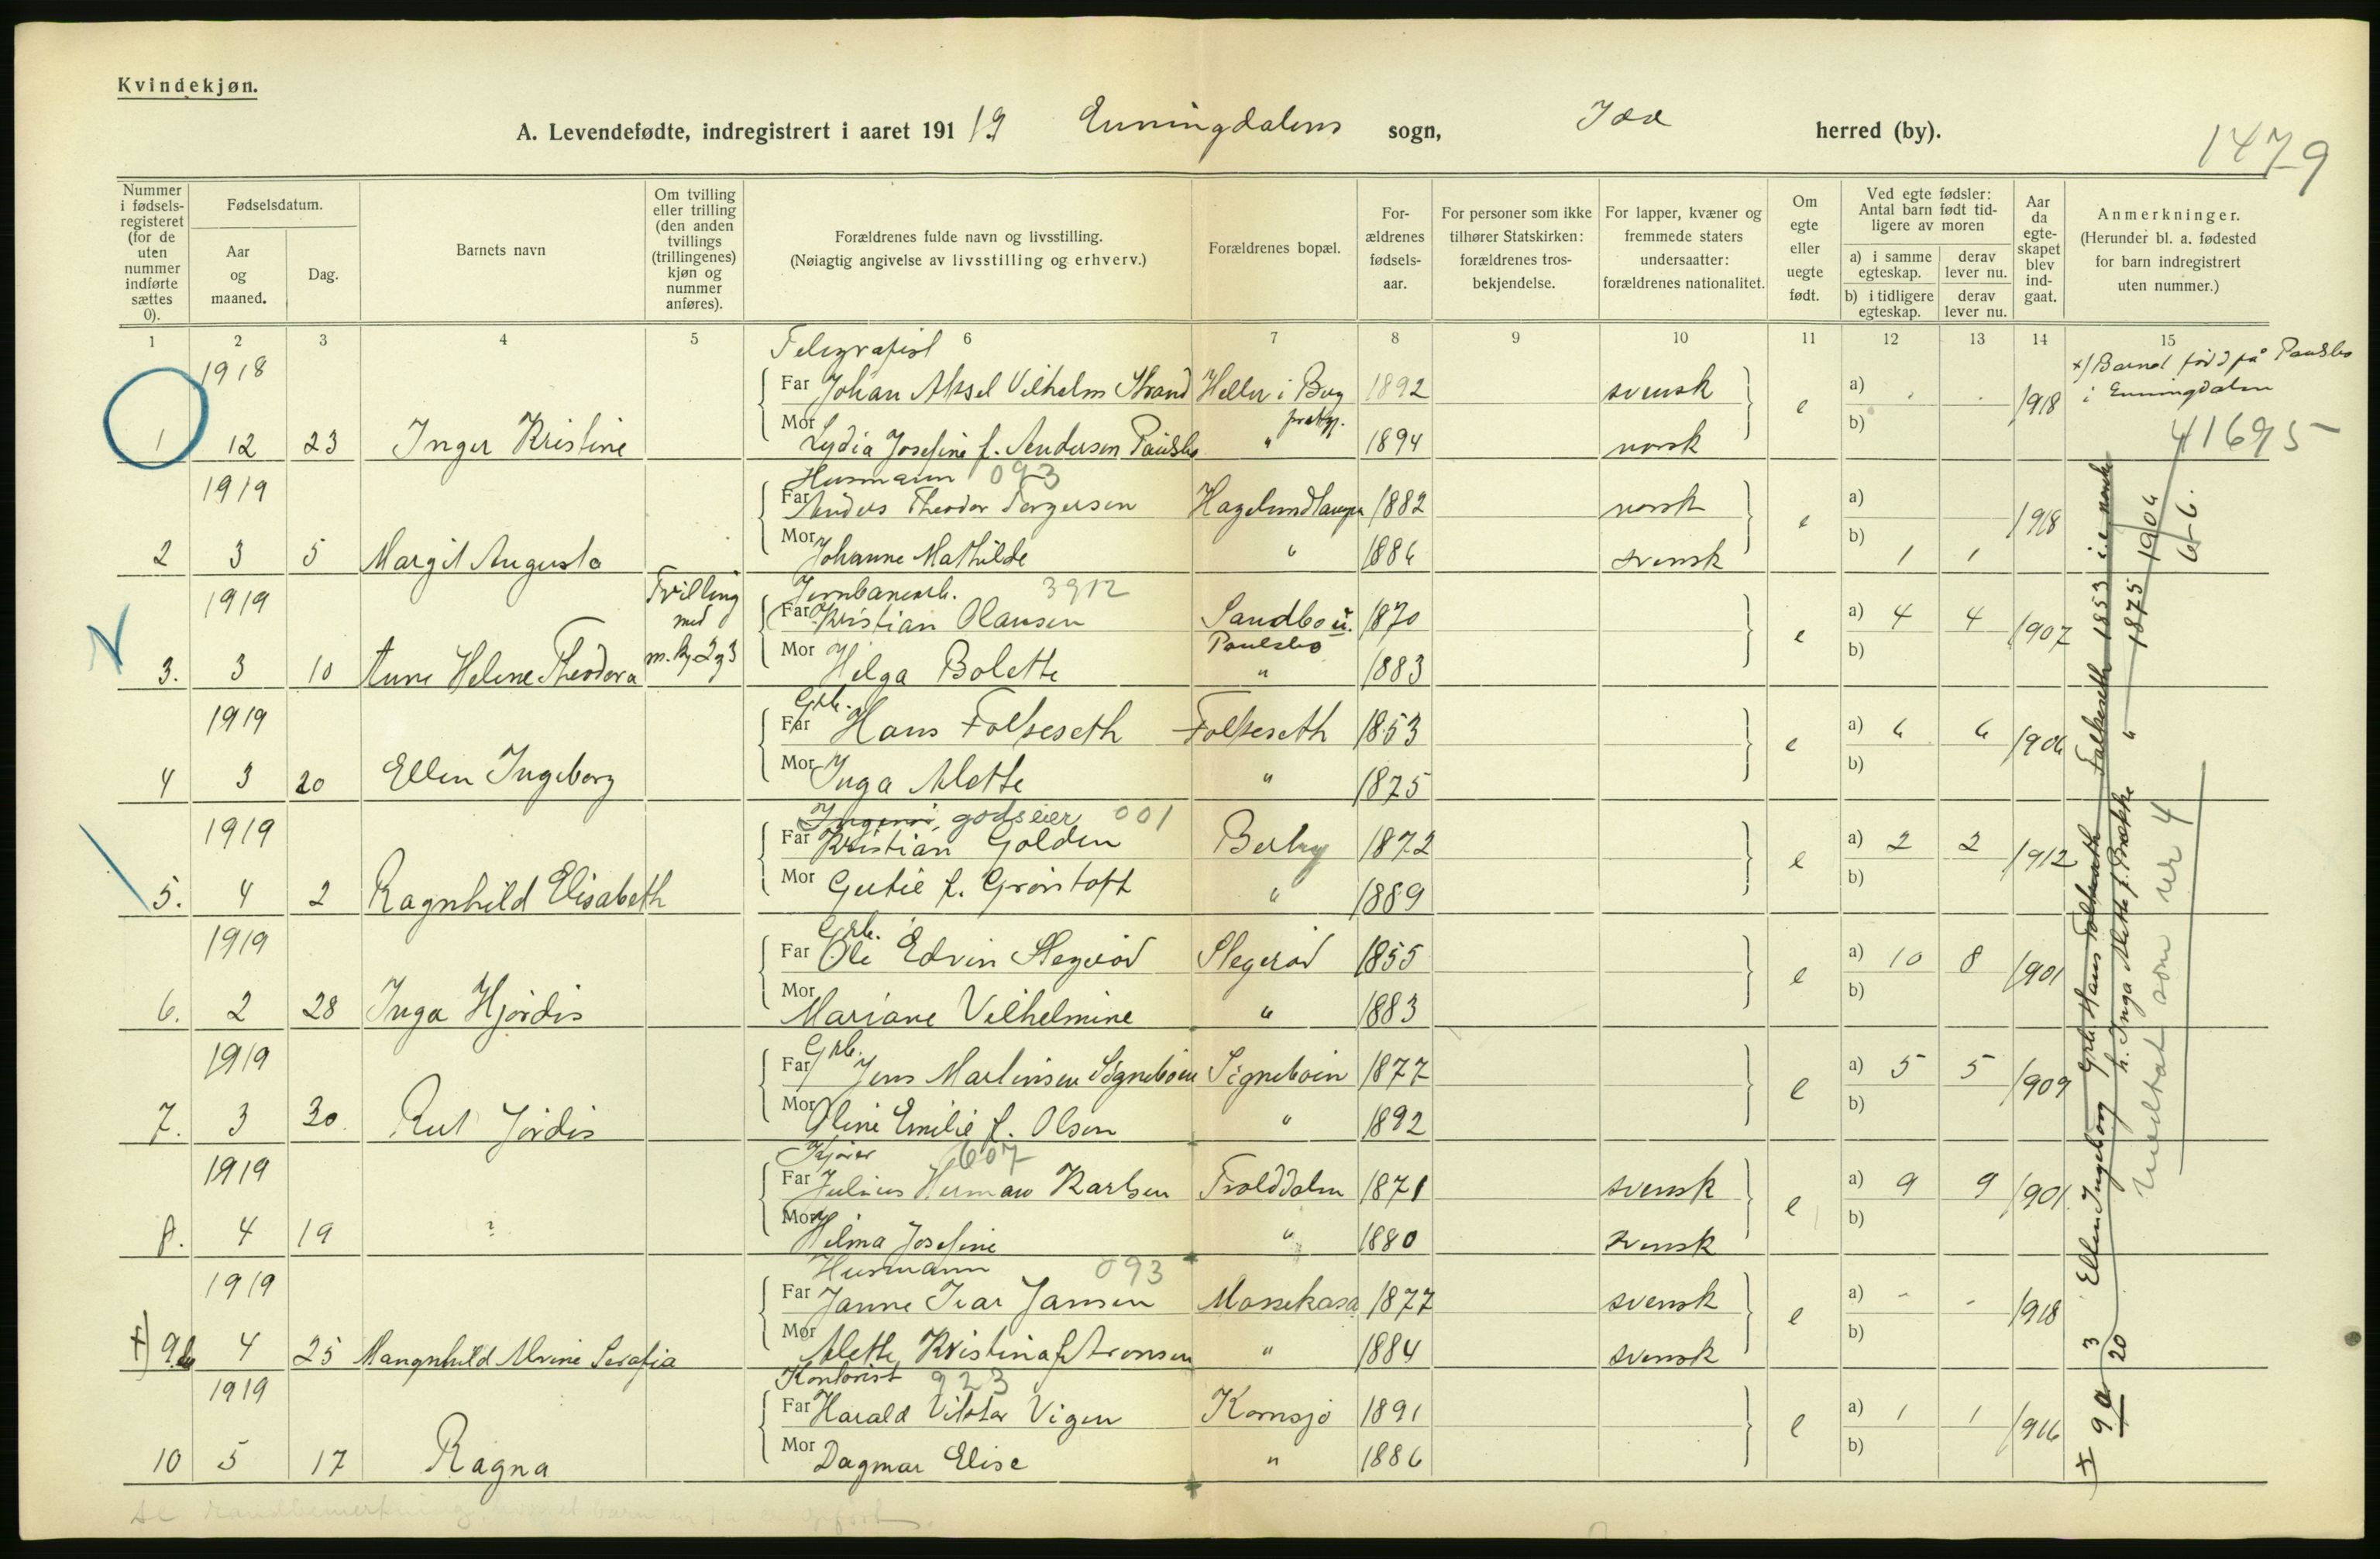 Kvindekjøn.
A. Levendefødte, indregistrert i aaret 191 19 Enningdalens sogn, Idd herred (by).
1479
Nummer i fødsels-registeret (for de uten nummer indførte sættes 0).
Fødselsdatum.
Aar og maaned.
Dag.
Barnets navn
Om tvilling eller trilling (den anden tvillings (trillingenes) kjøn og nummer anføres).
Forældrenes fulde navn og livsstilling. (Nøiagtig angivelse av livsstilling og erhverv.)
Forældrenes bopæl.
For-ældrenes fødsels-aar.
For personer som ikke tilhører Statskirken: forældrenes tros-bekjendelse.
For lapper, kvæner og fremmede staters undersaatter: forældrenes nationalitet.
Om egte eller uegte født.
Ved egte fødsler: Antal barn født tid-ligere av moren
a) i samme egteskap.
derav lever nu.
b) i tidligere egteskap.
derav lever nu.
Aar da egte-skapet blev ind-gaat.
Anmerkninger. (Herunder bl. a. fødested for barn indregistrert uten nummer.)
1 2 3 4 5 6 7 8 9 10 11 12 13 14 15
Telegrafist
1918 Far Johan Aksel Vilhelm Strand Heller i Bug 1892 svensk e a) 1918
x) Barnet född på Paulsbo i Enningdalen
1 12 23 Inger Kristine Mor Lydia Josefine f. Andersen Paulsbo " 1894 norsk b)
41695
Husmann 093
1919 Far Anders Theodor Torgersen 1882 norsk e a) 1918
2 3 5 Margit Augusta Mor Johanne Mathilde " 1886 svensk b) 1 1
Tvilling med m. 2 og 3
Jernbanearb. 3912
1919 Far Kristian Olausen Sandbo u. Paulsbo 1870 e a) 4 4 1907
3. 3 10 Anne Helene Theodora Mor Helga Bolette " 1883 b)
Grb.
1919 Far Hans Folkeseth Folkeseth 1853 e a) 6 6 1906
4 3 20 Ellen Ingeborg Mor Inga Alette " 1875 b)
godseier 001
1919 Far Kristian Golden Berby 1872 e a) 2 2 1912
5. 4 2 Ragnhild Elisabeth Mor Gertie f. Gröntoft " 1889 b)
Grb.
1919 Far Ole Edvin Stegeröd Stegeröd 1855 e a) 10 8 1901
6. 2 28 Inga Hjördis Mor Mariane Vilhelmine " 1883 b)
Grb.
1919 Far Jens Martinsen Signeböen Signeböen 1877 e a) 5 5 1909
7. 3 30 Rut Jördis Mor Oline Emilie f. Olsen " 1892 b)
Kjörer 607
1919 Far Julius Herman Karlsen Trolddalen 1871 svensk e a) 9 9 1901
8. 4 19 ? Mor Hilma Josefine " 1880 svensk b)
Husmann 093
1919 Far Janne Ivar Jansen Mossekasa 1877 svensk e a) - - 1918
x) 9 4 25 Mangnhild Alvine Serafia Mor Alette Kristina f. Aronsen " 1884 svensk b)
Kontorist 923
1919 Far Harald Viktor Vigen Kornsjö 1891 e a) 1 1 1916
10 5 17 Ragna Mor Dagmar Elise " 1886 b)
x 9a 3/20 Ellen Ingeborg Grb. Hans Folkeseth Folkeseth 1853
h. Inga Alette f. Prække " 1875 1906 6-6.
medtat som nr 4